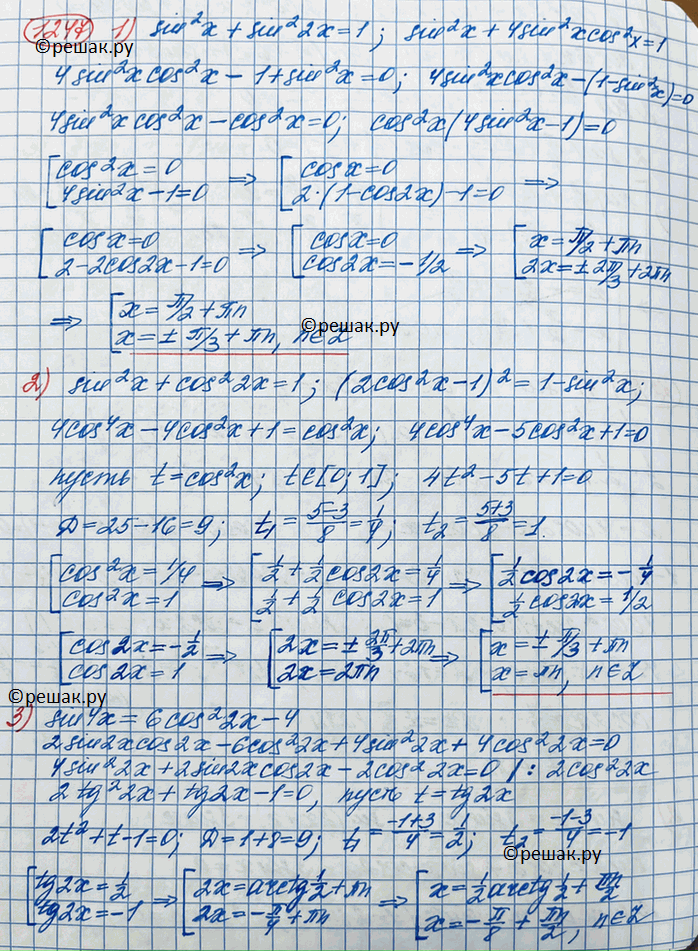 1247 1) sin²x + sin²2x = 1; sin²x + 4sin²xcos²x = 1
©решак.ру
4sin²xcos²x - 1 + sin²x = 0; 4sin²xcos²x - (1-sin²x) = 0
4sin²xcos²x - cos²x = 0; cos²x(4sin²x - 1) = 0
[cos²x = 0 ⇒ [cosx = 0 ⇒
4sin²x - 1 = 0 2·(1-cos2x) - 1 = 0
[cosx = 0 ⇒ [cosx = 0 ⇒ [x = π/2 + πn
2 - 2cos2x - 1 = 0 cos2x = -1/2 2x = ± 2π/3 + 2πn
⇒ [x = π/2 + πn
x = ± π/3 + πn, n∈Z
©решак.ру
2) sin²x + cos²2x = 1; (2cos²x - 1)² = 1 - sin²x;
4cos⁴x - 4cos²x + 1 = cos²x; 4cos⁴x - 5cos²x + 1 = 0
пусть t = cos²x; t∈[0; 1]; 4t² - 5t + 1 = 0
Д = 25 - 16 = 9; t₁ = (5-3)/8 = 1/4; t₂ = (5+3)/8 = 1.
[cos²x = 1/4 ⇒ [1/2 + 1/2 cos2x = 1/4 ⇒ [1/2 cos2x = -1/4
cos²x = 1 1/2 + 1/2 cos2x = 1 1/2 cos2x = 1/2
[cos2x = -1/2 ⇒ [2x = ± 2π/3 + 2πn ⇒ [x = ± π/3 + πn
cos2x = 1 2x = 2πn x = πn, n∈Z
©решак.ру
3) sin4x = 6cos²2x - 4
2sin2xcos2x - 6cos²2x + 4sin²2x + 4cos²2x = 0
4sin²2x + 2sin2xcos2x - 2cos²2x = 0 /: 2cos²2x
2tg²2x + tg2x - 1 = 0, пусть t = tg2x
2t² + t - 1 = 0; Д = 1 + 8 = 9; t₁ = (-1+3)/4 = 1/2; t₂ = (-1-3)/4 = -1
©решак.ру
[tg2x = 1/2 ⇒ [2x = arctg 1/2 + πn ⇒ [x = 1/2 arctg 1/2 + πn/2
tg2x = -1 2x = -π/4 + πn x = -π/8 + πn/2, n∈Z